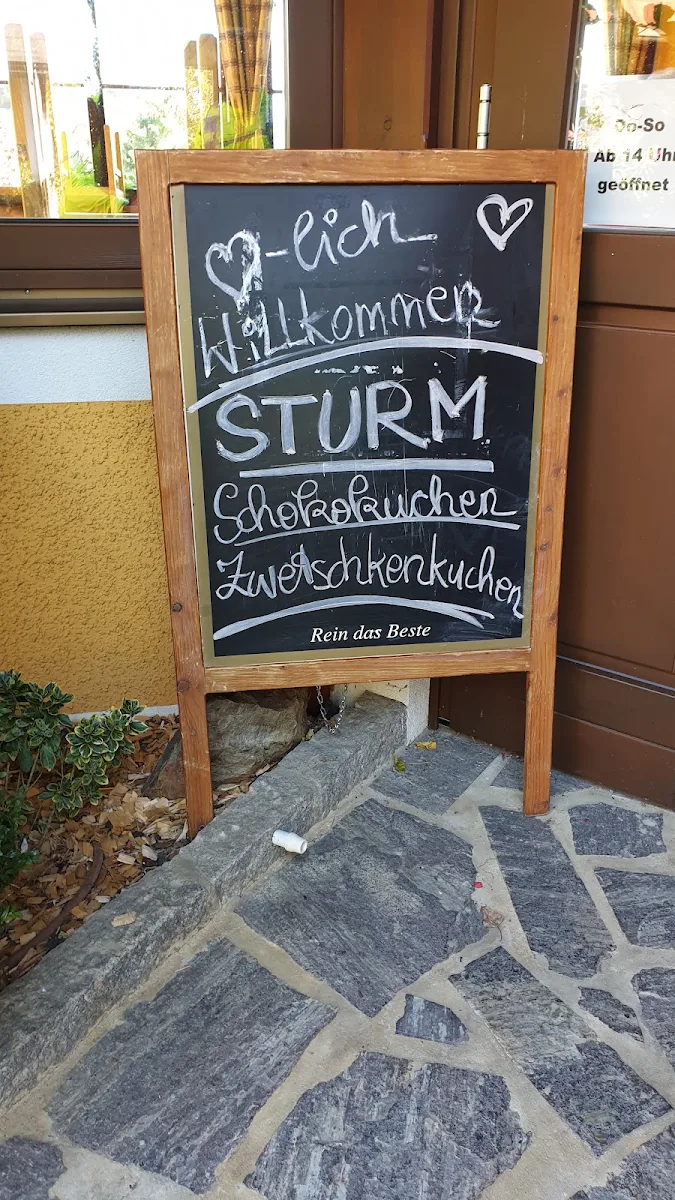 ♡-lich
Willkommen
STURM
Schokokuchen
Zwetschkenkuchen
Rein das Beste
Do-So
Ab 14 Uhr
geöffnet